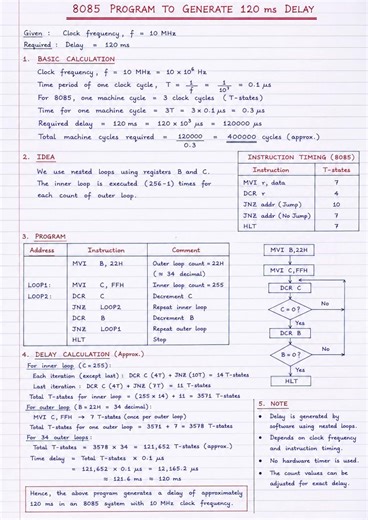 8085 PROGRAM TO GENERATE 120 ms DELAY
Given : Clock frequency, f = 10 MHz
Required : Delay = 120 ms
1. BASIC CALCULATION
Clock frequency, f = 10 MHz = 10 × 10⁶ Hz
Time period of one clock cycle, T = 1/f = 1/10⁷ = 0.1 μs
For 8085, one machine cycle = 3 clock cycles (T-states)
Time for one machine cycle = 3T = 3 × 0.1 μs = 0.3 μs
Required delay = 120 ms = 120 × 10³ μs = 120000 μs
Total machine cycles required = 120000/0.3 = 400000 cycles (approx.)
2. IDEA
We use nested loops using registers B and C.
The inner loop is executed (256-1) times for
each count of outer loop.
INSTRUCTION TIMING (8085)
Instruction T-states
MVI r, data 7
DCR r 4
JNZ addr (Jump) 10
JNZ addr (No Jump) 7
HLT 7
3. PROGRAM
Address Instruction Comment
MVI B, 22H Outer loop count = 22H
(≈ 34 decimal)
LOOP1: MVI C, FFH Inner loop count = 255
LOOP2: DCR C Decrement C
JNZ LOOP2 Repeat inner loop
DCR B Decrement B
JNZ LOOP1 Repeat outer loop
HLT Stop
MVI B,22H
MVI C,FFH
DCR C
C = 0?
No
Yes
DCR B
B = 0?
No
Yes
HLT
4. DELAY CALCULATION (Approx.)
For inner loop (C = 255):
Each iteration (except last) : DCR C (4T) + JNZ (10T) = 14 T-states
Last iteration : DCR C (4T) + JNZ (7T) = 11 T-states
Total T-states for inner loop = (255 × 14) + 11 = 3571 T-states
For outer loop (B = 22H = 34 decimal):
MVI C, FFH → 7 T-states (once per outer loop)
Total T-states for one outer loop = 3571 + 7 = 3578 T-states
For 34 outer loops:
Total T-states = 3578 × 34 = 121,652 T-states (approx.)
Time delay = Total T-states × 0.1 μs
= 121,652 × 0.1 μs = 12,165.2 μs
≈ 121.6 ms ≈ 120 ms
Hence, the above program generates a delay of approximately
120 ms in an 8085 system with 10 MHz clock frequency.
5. NOTE
• Delay is generated by
software using nested loops.
• Depends on clock frequency
and instruction timing.
• No hardware timer is used.
• The count values can be
adjusted for exact delay.